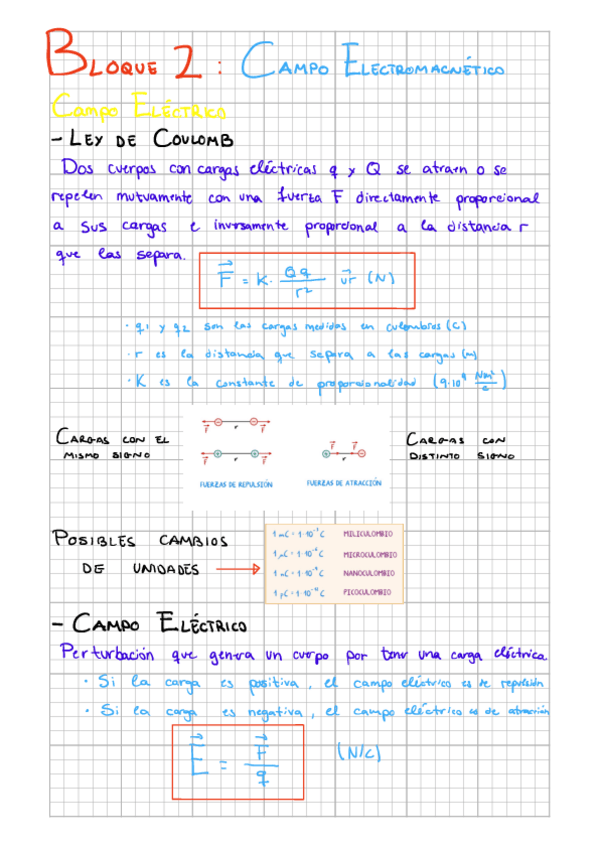 BLOQUE 2 : CAMPO ELECTROMAGNÉTICO
CAMPO ELÉCTRICO
- LEY DE COULOMB
Dos cuerpos con cargas eléctricas q y Q se atraen o se
repelen mutuamente con una fuerza F directamente proporcional
a sus cargas e inversamente proporcional a la distancia r
que las separa.
F⃗ = K · Qq / r² u⃗r (N)
· q1 y q2 son las cargas medidas en culombios (C)
· r es la distancia que separa a las cargas (m)
· K es la constante de proporcionalidad (9·10⁹ Nm²/c)
CARGAS CON EL
MISMO SIGNO
F⃗ r F⃗
F⃗ r F⃗
FUERZAS DE REPULSIÓN
F⃗ F⃗
r
FUERZAS DE ATRACCIÓN
CARGAS CON
DISTINTO SIGNO
POSIBLES CAMBIOS
DE UNIDADES
1 mC = 1·10⁻³ C MILICULOMBIO
1 μC = 1·10⁻⁶ C MICROCULOMBIO
1 nC = 1·10⁻⁹ C NANOCULOMBIO
1 pC = 1·10⁻¹² C PICOCULOMBIO
- CAMPO ELÉCTRICO
Perturbación que genera un cuerpo por tener una carga eléctrica
· Si la carga es positiva, el campo eléctrico es de repulsión
· Si la carga es negativa, el campo eléctrico es de atracción
E⃗ = F⃗ / q (N/C)